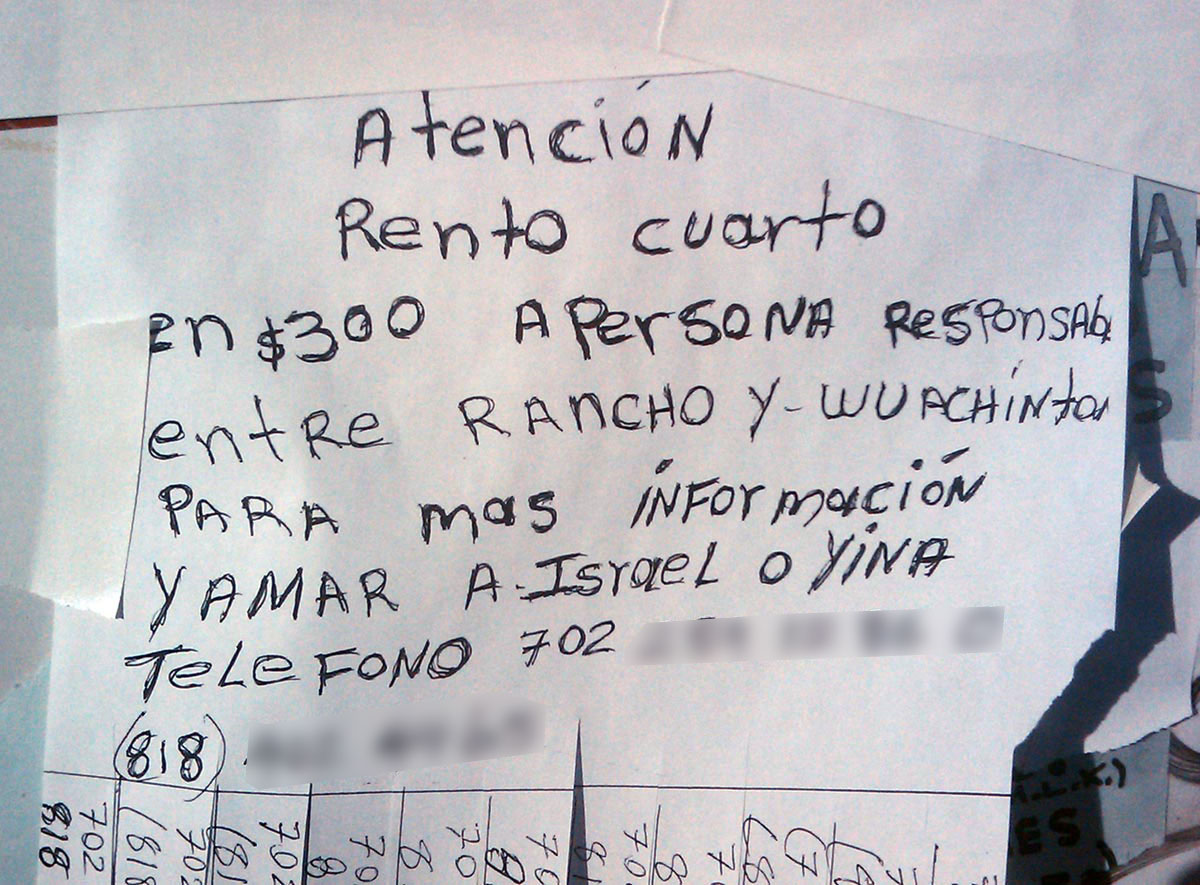 Atención
Rento cuarto
en $300 A PersoNA ResPoNsAb
entRe RANCHO Y-WUACHiNton
PARA mas iNFormación
YAMAR A-IsraeL o YiNA
TeLeFONO 702
(818)
A
S
.L.K.)
ES
818
702
(818
702
(81
702
8
70
8
70
8
70
81
70
(8
7
(8
(7